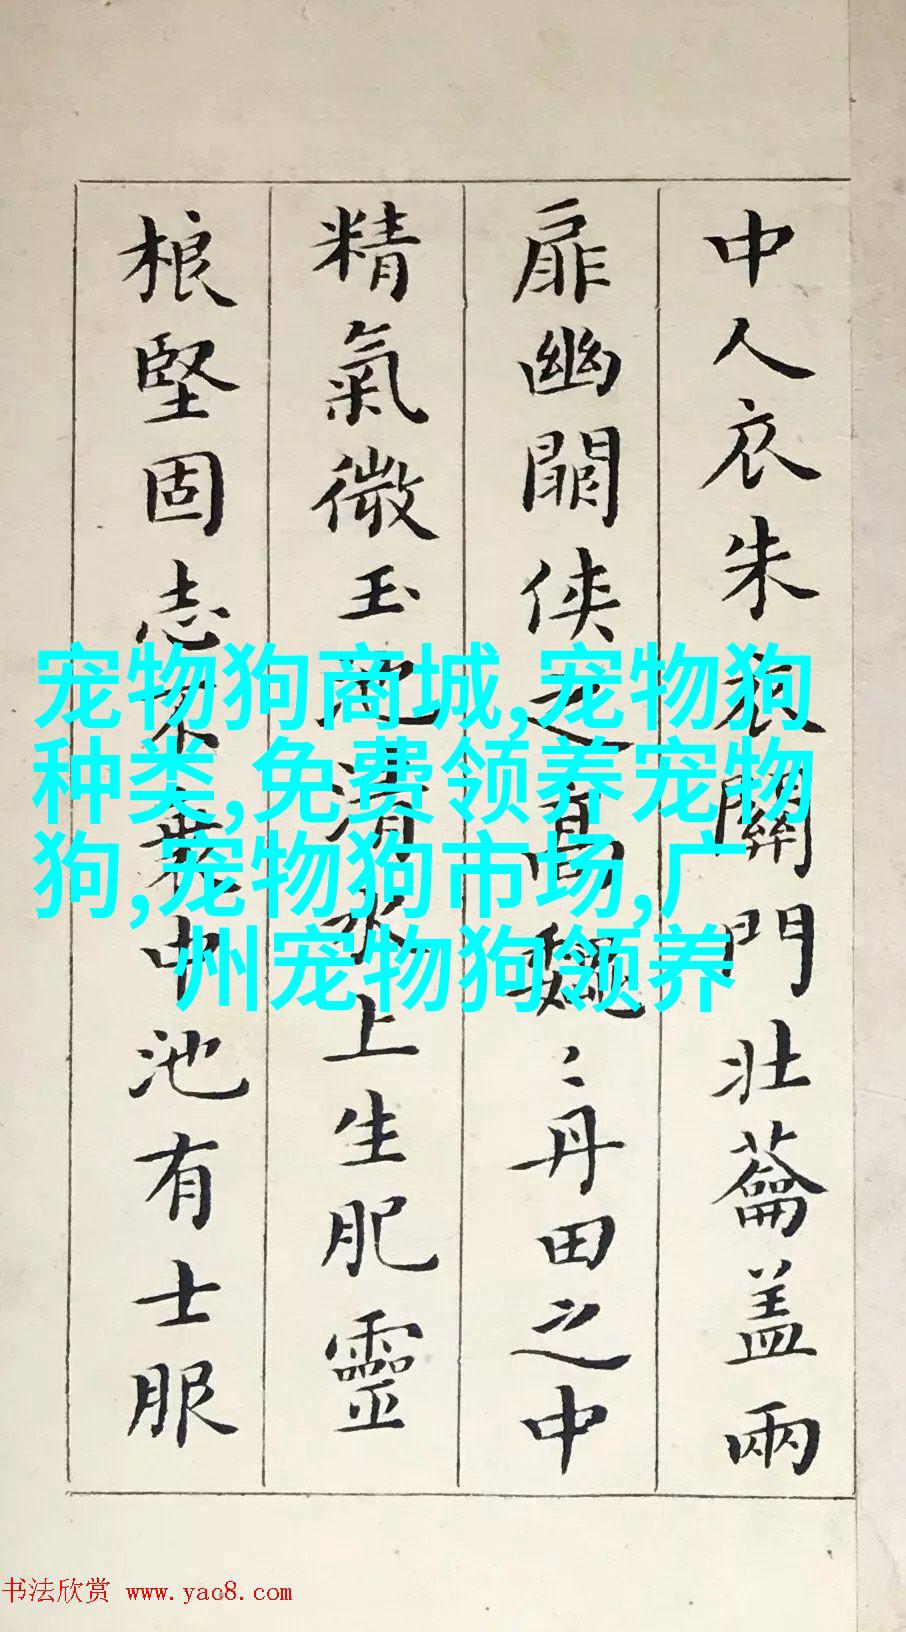 中人衣朱衣關門壯蘥盖兩
扉幽關侠之高魏〻丹田之中
精氣微玉池清水上生肥靈
根堅固志不衰中池有士服
宠物狗商城,宠物狗
种类,免费领养宠物
狗,宠物狗市场,广
州宠物狗领养
书法欣赏 www.yac8.com